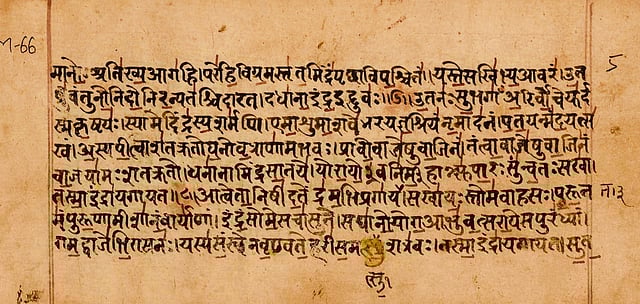 मानो अतिख्य आगहि। परेहि विग्रमस्तृतमिंद्रं पृच्छा विपश्चितं। यस्ते सखिभ्य आवरं। उत
ब्रुवंतु नो निदो निरन्यतश्चिदारत। दधाना इंद्र इद्दुवः॥७॥ उत नः सुभगाँ अरिर्वोचेयुर्द
स्म कृष्टयः। स्यामेदिंद्रस्य शर्मणि। एमाशुमाशवे भर यज्ञश्रियं नृमादनं। पतयन्मंदयत्स
खं। अस्य पीत्वा शतक्रतो घनो वृत्राणामभवः। प्रावो वाजेषु वाजिनं। तं त्वा वाजेषु वाजिनं
वाजयामः शतक्रतो। धनानामिंद्र सातये। यो रायो३वनिर्महान्त्सुपारः सुन्वतः सखा।
तस्मा इंद्राय गायत॥८॥ आत्वेता निषीदतेंद्रमभि प्रगायत। सखायः स्तोमवाहसः। पुरूत
मं पुरूणामीशानं वार्याणां। इंद्रं सोमे सचा सुते। स घा नो योग आभुवत्स राये स पुरंध्यां।
गमद्वाजेभिरा स नः। यस्य संस्थे न वृण्वते हरी समत्सु शत्रवः। तस्मा इंद्राय गायत। सुत